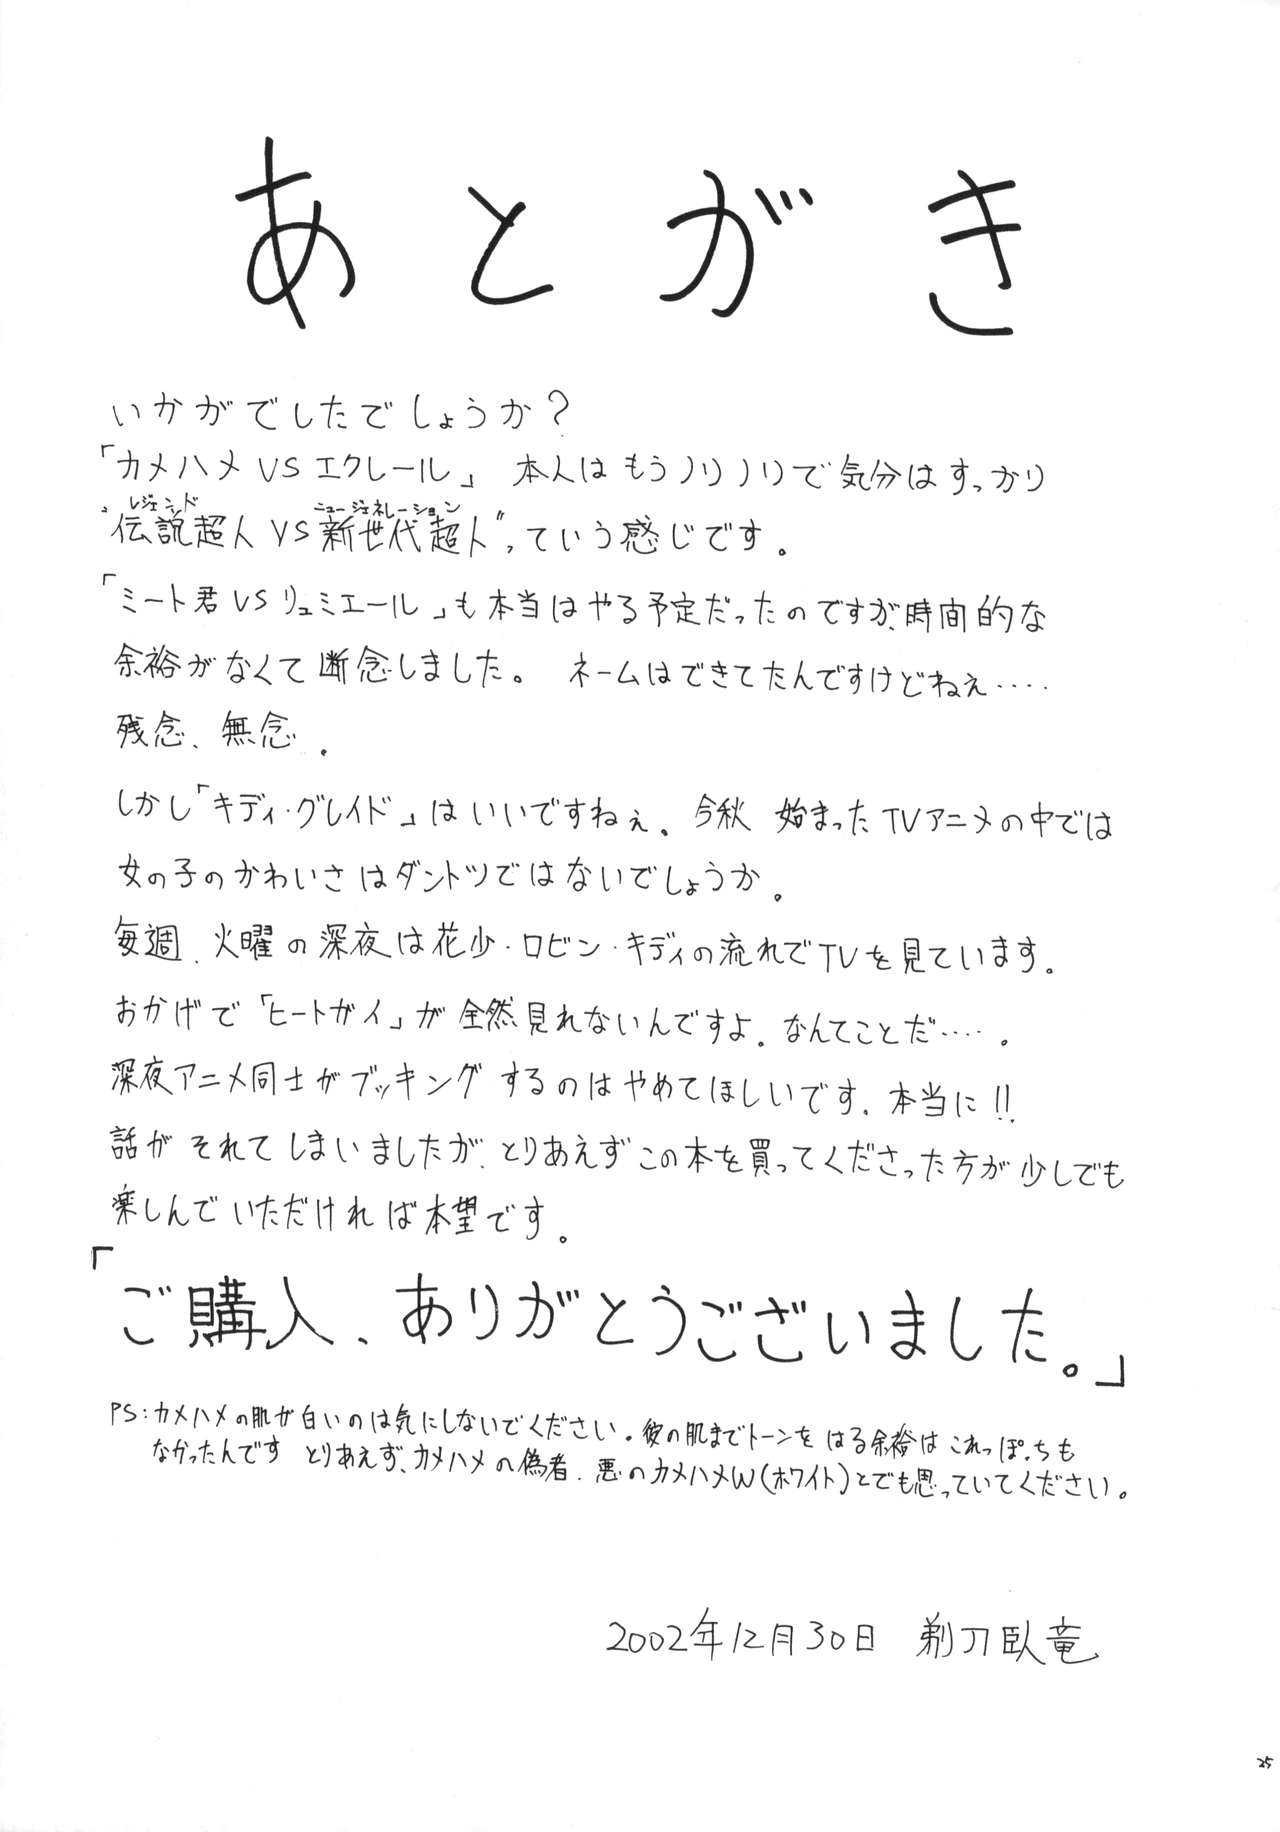 あとがき
いかがでしたでしょうか?
「カメハメVSエクレール」 本人はもうノリノリで気分はすっかり
レジェンド ニュージェネレーション
“伝説超人VS新世代超人”っていう感じです。
「ミート君VSリュミエール」も本当はやる予定だったのですが、時間的な
余裕がなくて断念しました。 ネームはできてたんですけどねぇ‥‥
残念、無念。
しかし「キディ・グレイド」はいいですねぇ。今秋 始まったTVアニメの中では
女の子のかわいさはダントツではないでしょうか。
毎週、火曜の深夜は花少・ロビン・キディの流れでTVを見ています。
おかげで「ヒートガイ」が全然見れないんですよ。なんてことだ‥‥。
深夜アニメ同士がブッキングするのはやめてほしいです、本当に!!
話がそれてしまいましたが、とりあえずこの本を買ってくださった方が少しでも
楽しんでいただければ本望です。
「ご購入、ありがとうございました。」
PS:カメハメの肌が白いのは気にしないでください。彼の肌までトーンをはる余裕はこれっぽっちも
なかったんです とりあえず、カメハメの偽者、悪のカメハメW(ホワイト)とでも思っていてください。
2002年12月30日 剃刀臥竜
25